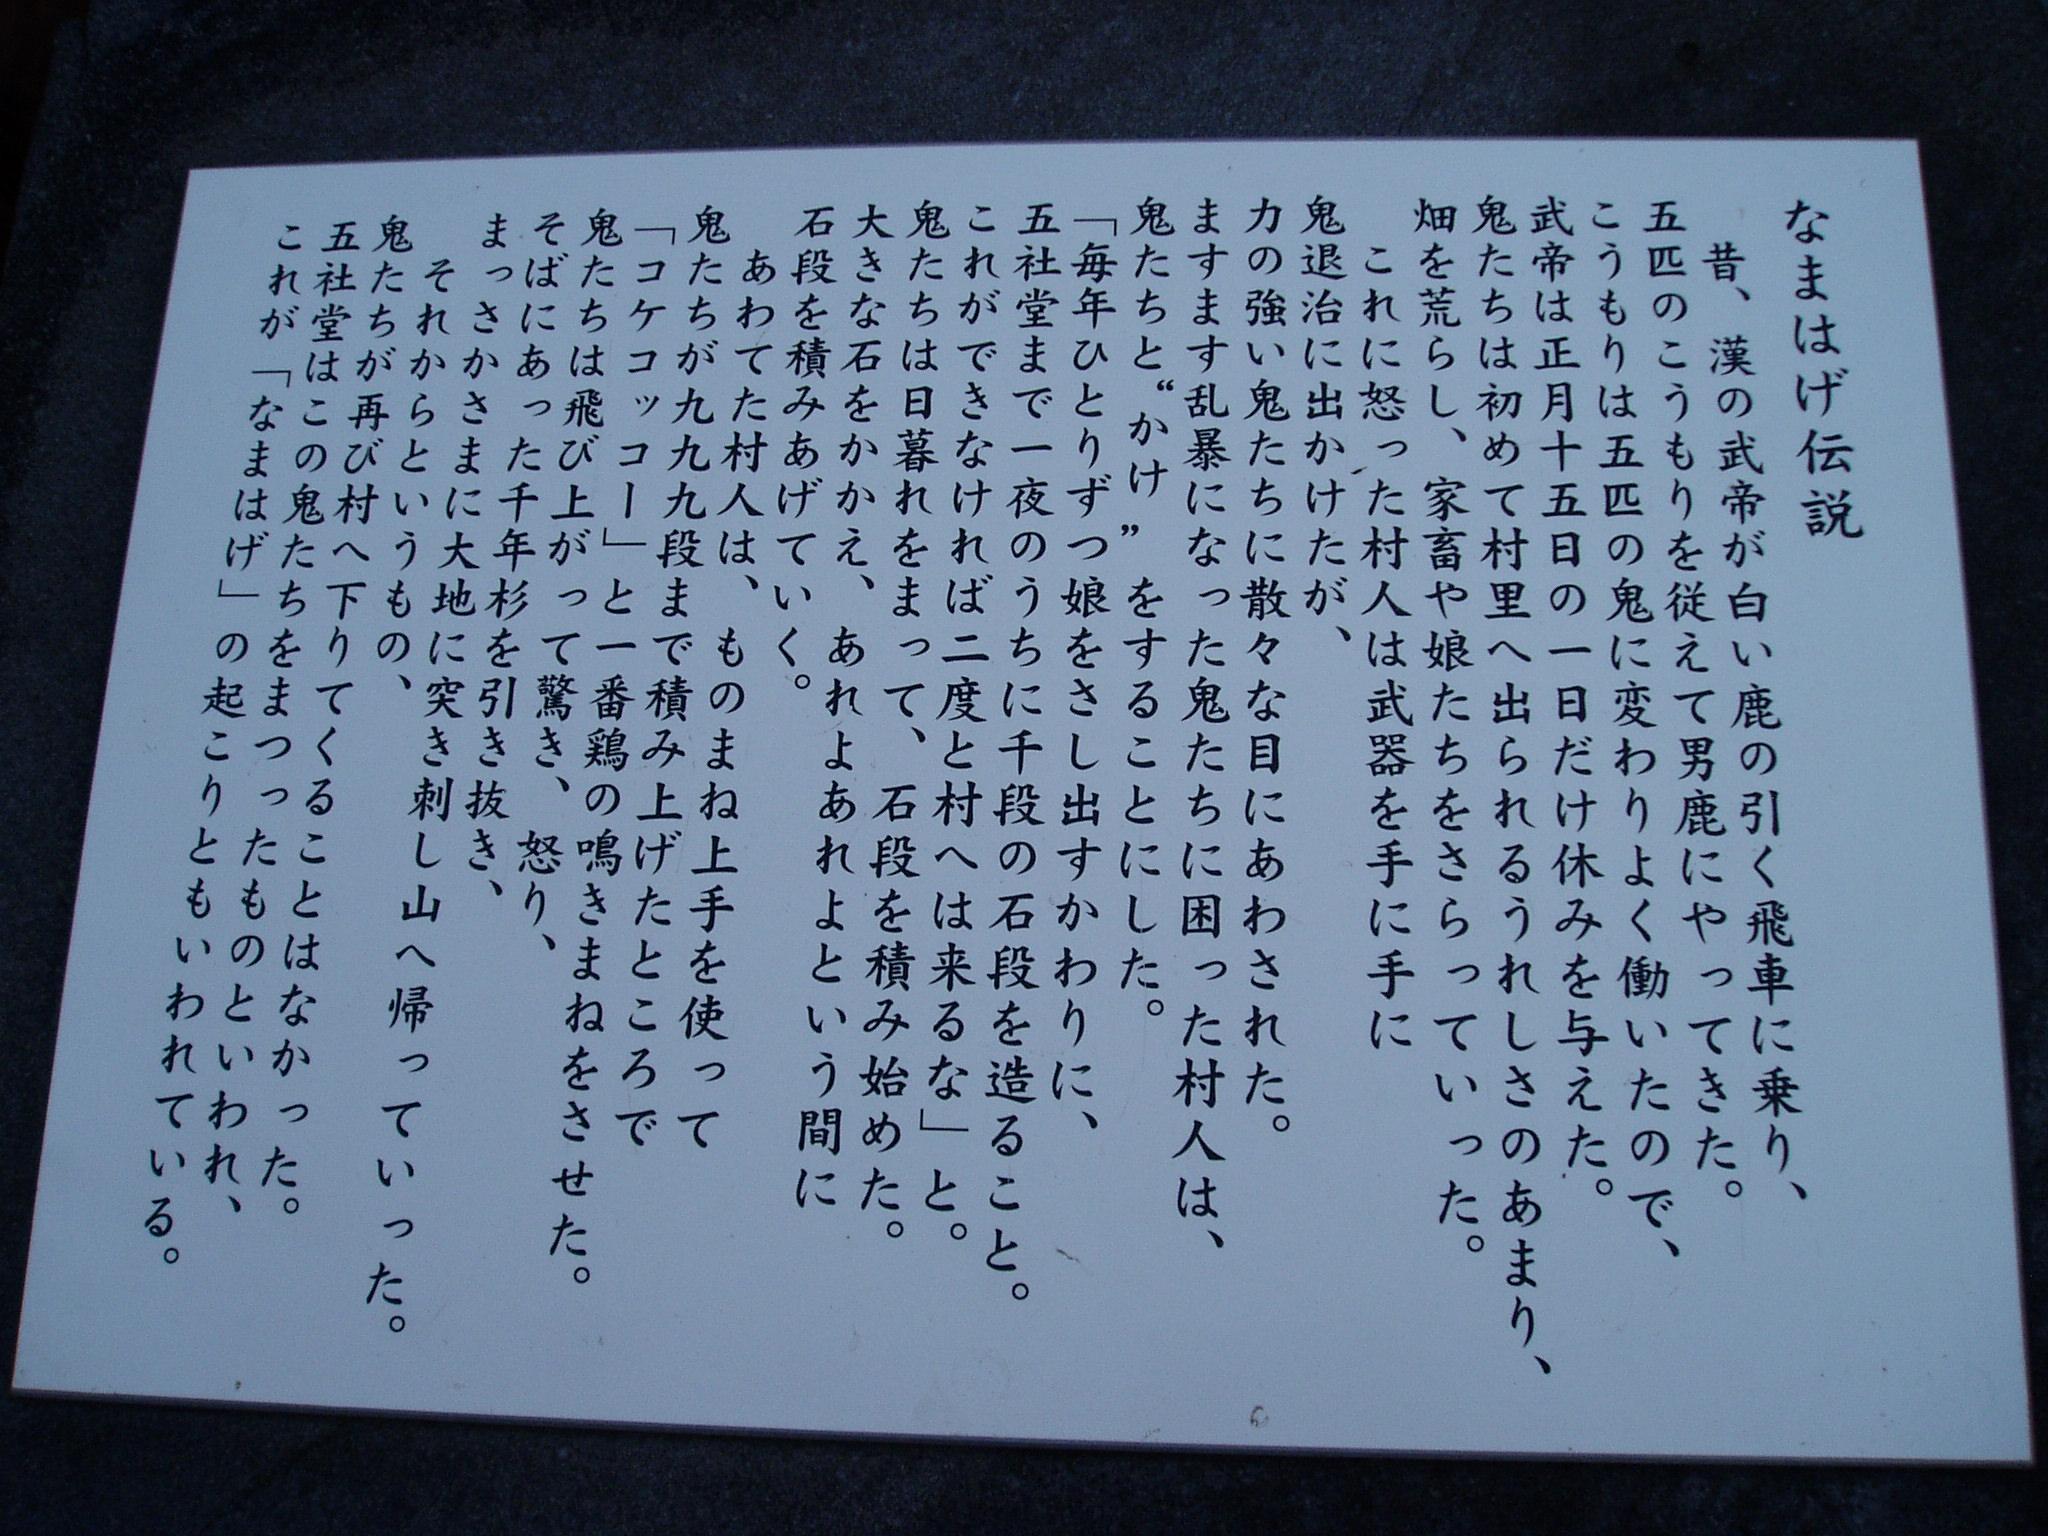 なまはげ伝説
昔、漢の武帝が白い鹿の引く飛車に乗り、
五匹のこうもりを従えて男鹿にやってきた。
こうもりは五匹の鬼に変わりよく働いたので、
武帝は正月十五日の一日だけ休みを与えた。
鬼たちは初めて村里へ出られるうれしさのあまり、
畑を荒らし、家畜や娘たちをさらっていった。
これに怒った村人は武器を手に手に
鬼退治に出かけたが、
力の強い鬼たちに散々な目にあわされた。
ますます乱暴になった鬼たちに困った村人は、
鬼たちと“かけ”をすることにした。
「毎年ひとりずつ娘をさし出すかわりに、
五社堂まで一夜のうちに千段の石段を造ること。
これができなければ二度と村へは来るな」と。
鬼たちは日暮れをまって、石段を積み始めた。
大きな石をかかえ、あれよあれよという間に
石段を積みあげていく。
あわてた村人は、ものまね上手を使って
鬼たちが九九九段まで積み上げたところで
「コケコッコー」と一番鶏の鳴きまねをさせた。
鬼たちは飛び上がって驚き、怒り、
そばにあった千年杉を引き抜き、
まっさかさまに大地に突き刺し山へ帰っていった。
それからというもの、
鬼たちが再び村へ下りてくることはなかった。
五社堂はこの鬼たちをまつったものといわれ、
これが「なまはげ」の起こりともいわれている。